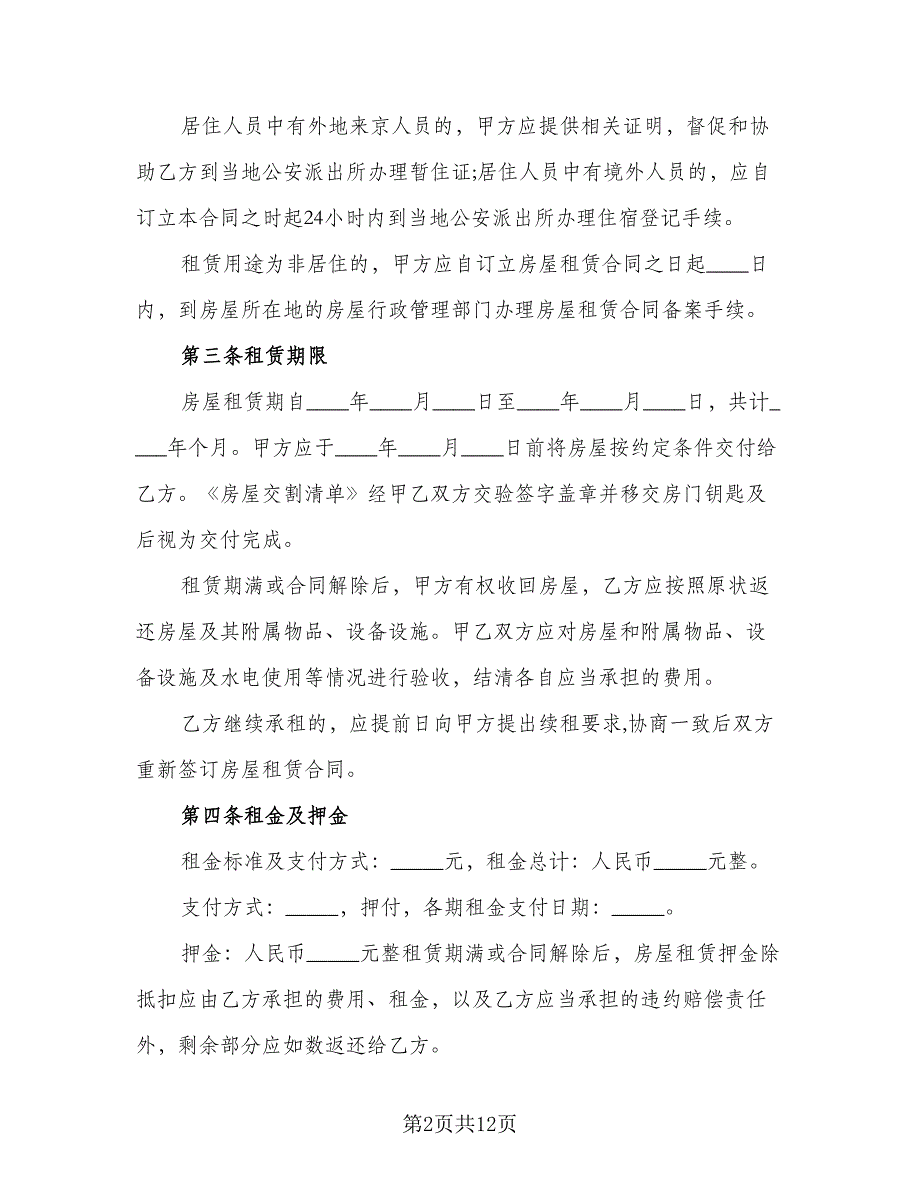 居住人员中有外地来京人员的，甲方应提供相关证明，督促和协
助乙方到当地公安派出所办理暂住证;居住人员中有境外人员的，应自
订立本合同之时起24小时内到当地公安派出所办理住宿登记手续。
租赁用途为非居住的，甲方应自订立房屋租赁合同之日起____日
内，到房屋所在地的房屋行政管理部门办理房屋租赁合同备案手续。
第三条租赁期限
房屋租赁期自____年____月____日至____年____月____日，共计_
___年个月。甲方应于____年____月____日前将房屋按约定条件交付给
乙方。《房屋交割清单》经甲乙双方交验签字盖章并移交房门钥匙及
后视为交付完成。
租赁期满或合同解除后，甲方有权收回房屋，乙方应按照原状返
还房屋及其附属物品、设备设施。甲乙双方应对房屋和附属物品、设
备设施及水电使用等情况进行验收，结清各自应当承担的费用。
乙方继续承租的，应提前日向甲方提出续租要求,协商一致后双方
重新签订房屋租赁合同。
第四条租金及押金
租金标准及支付方式：_____元，租金总计：人民币_____元整。
支付方式：_____，押付，各期租金支付日期：_____。
押金：人民币_____元整租赁期满或合同解除后，房屋租赁押金除
抵扣应由乙方承担的费用、租金，以及乙方应当承担的违约赔偿责任
外，剩余部分应如数返还给乙方。
第2页共12页